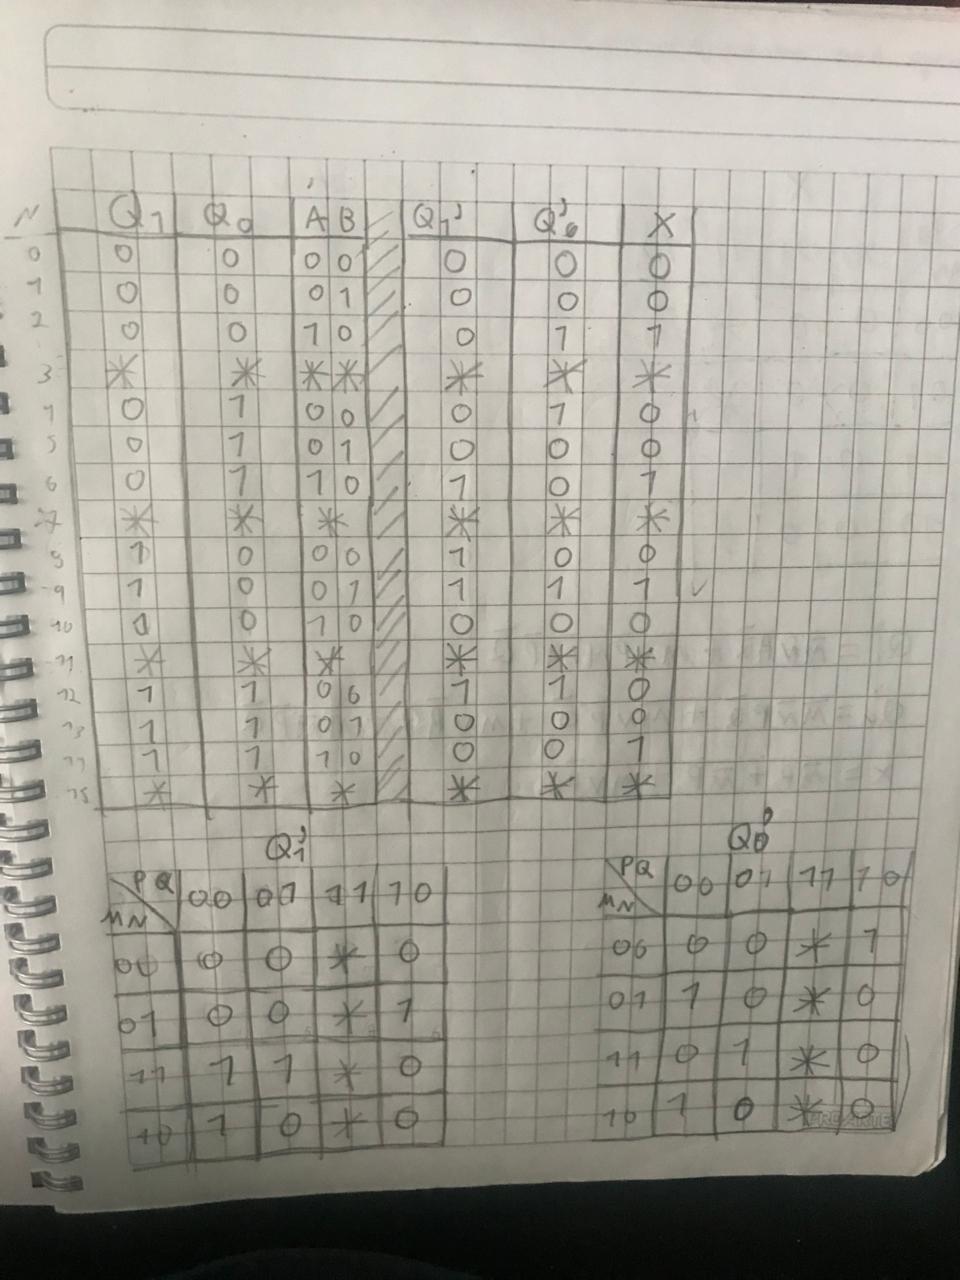 N Q1 Q0 A B Q1' Q'0 X
0 0 0 0 0 0 0 0
1 0 0 0 1 0 0 0
2 0 0 1 0 0 1 1
3 * * * * * * *
4 0 1 0 0 0 1 0
5 0 1 0 1 0 0 0
6 0 1 1 0 1 0 1
7 * * * * * *
8 1 0 0 0 1 0 0
9 1 0 0 1 1 1 1
10 0 0 1 0 0 0 0
11 * * * * * *
12 1 1 0 0 1 1 0
13 1 1 0 1 0 0 0
14 1 1 1 0 0 0 1
15 * * * * * *
Q1'
PQ 00 01 11 10
MN
00 0 0 * 0
01 0 0 * 1
11 1 1 * 0
10 1 0 * 0
Q0'
PQ 00 01 11 10
MN
00 0 0 * 1
01 1 0 * 0
11 0 1 * 0
10 1 0 * 0